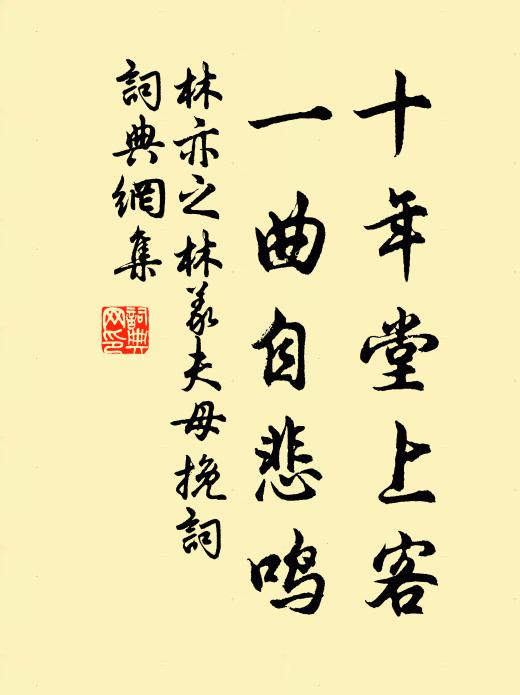 十年堂上客
一曲自悲鸣
林亦之林義夫母挽詞
詞典網集
詞典网印